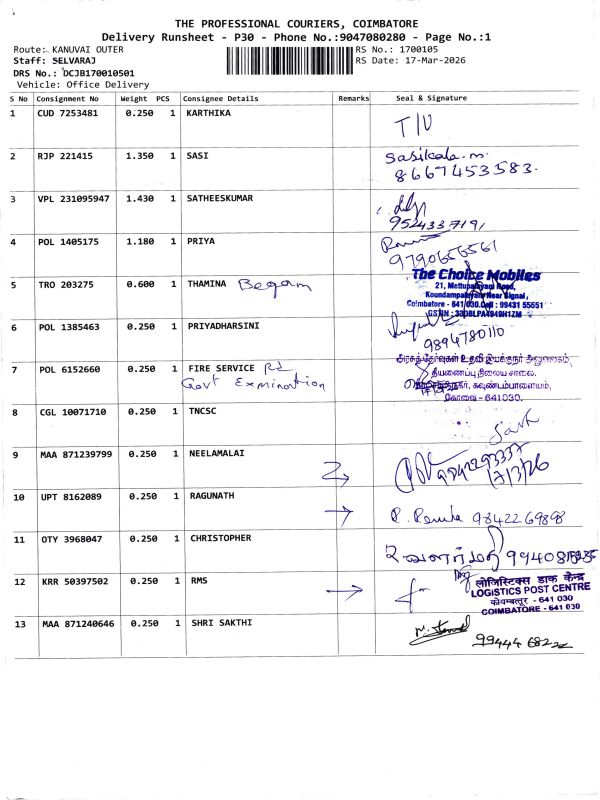 THE PROFESSIONAL COURIERS, COIMBATORE
Delivery Runsheet - P30 - Phone No.:9047080280 - Page No.:1
Route: KANUVAI OUTER
Staff: SELVARAJ
DRS No.: DCJB170010501
Vehicle: Office Delivery
RS No.: 1700105
RS Date: 17-Mar-2026
S No Consignment No Weight PCS Consignee Details Remarks Seal & Signature
1 CUD 7253481 0.250 1 KARTHIKA
2 RJP 221415 1.350 1 SASI Sasikala.m.
8667453583.
3 VPL 231095947 1.430 1 SATHEESKUMAR
4 POL 1405175 1.180 1 PRIYA
9790656561
The Choice Mobiles
5 TRO 203275 0.600 1 THAMINA Begam
21, Mettupalayam Road,
Koundampalayam Near Signal,
Coimbatore - 641 030. Cell : 99431 55551
6 POL 1385463 0.250 1 PRIYADHARSINI
9894780110
7 POL 6152660 0.250 1 FIRE SERVICE
Govt Examination
தீயணைப்பு நிலைய சாலை,
கவுண்டம்பாளையம்,
கோவை - 641030.
8 CGL 10071710 0.250 1 TNCSC
9 MAA 871239799 0.250 1 NEELAMALAI
17/3/26
10 UPT 8162089 0.250 1 RAGUNATH
9842269898
11 OTY 3968047 0.250 1 CHRISTOPHER
12 KRR 50397502 0.250 1 RMS
लोजिस्टिक्स डाक केन्द्र
LOGISTICS POST CENTRE
कोयम्बत्तूर - 641 030
COIMBATORE - 641 030
13 MAA 871240646 0.250 1 SHRI SAKTHI